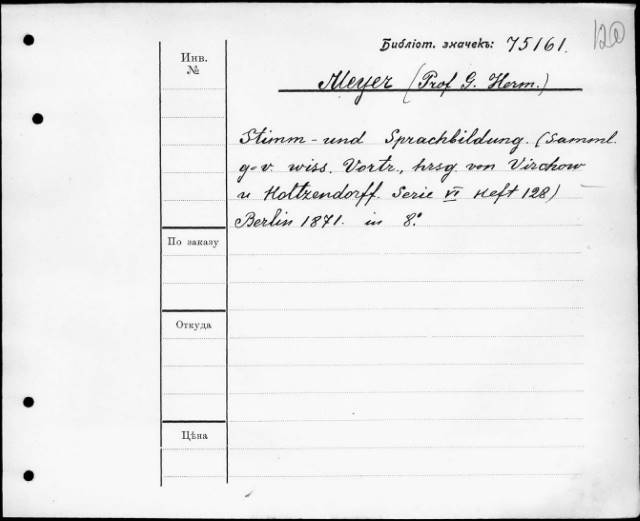 Библіот. значекъ: 75161.
120
Инв.
№
Meyer (Prof G. Herm.)
Stimm - und Sprachbildung. (Samml.
g. v. wiss. Vortr., hrsg von Virchow
u Holtzendorff. Serie VI Heft 128)
Berlin 1871. in 8º.
По заказу
Откуда
Цѣна